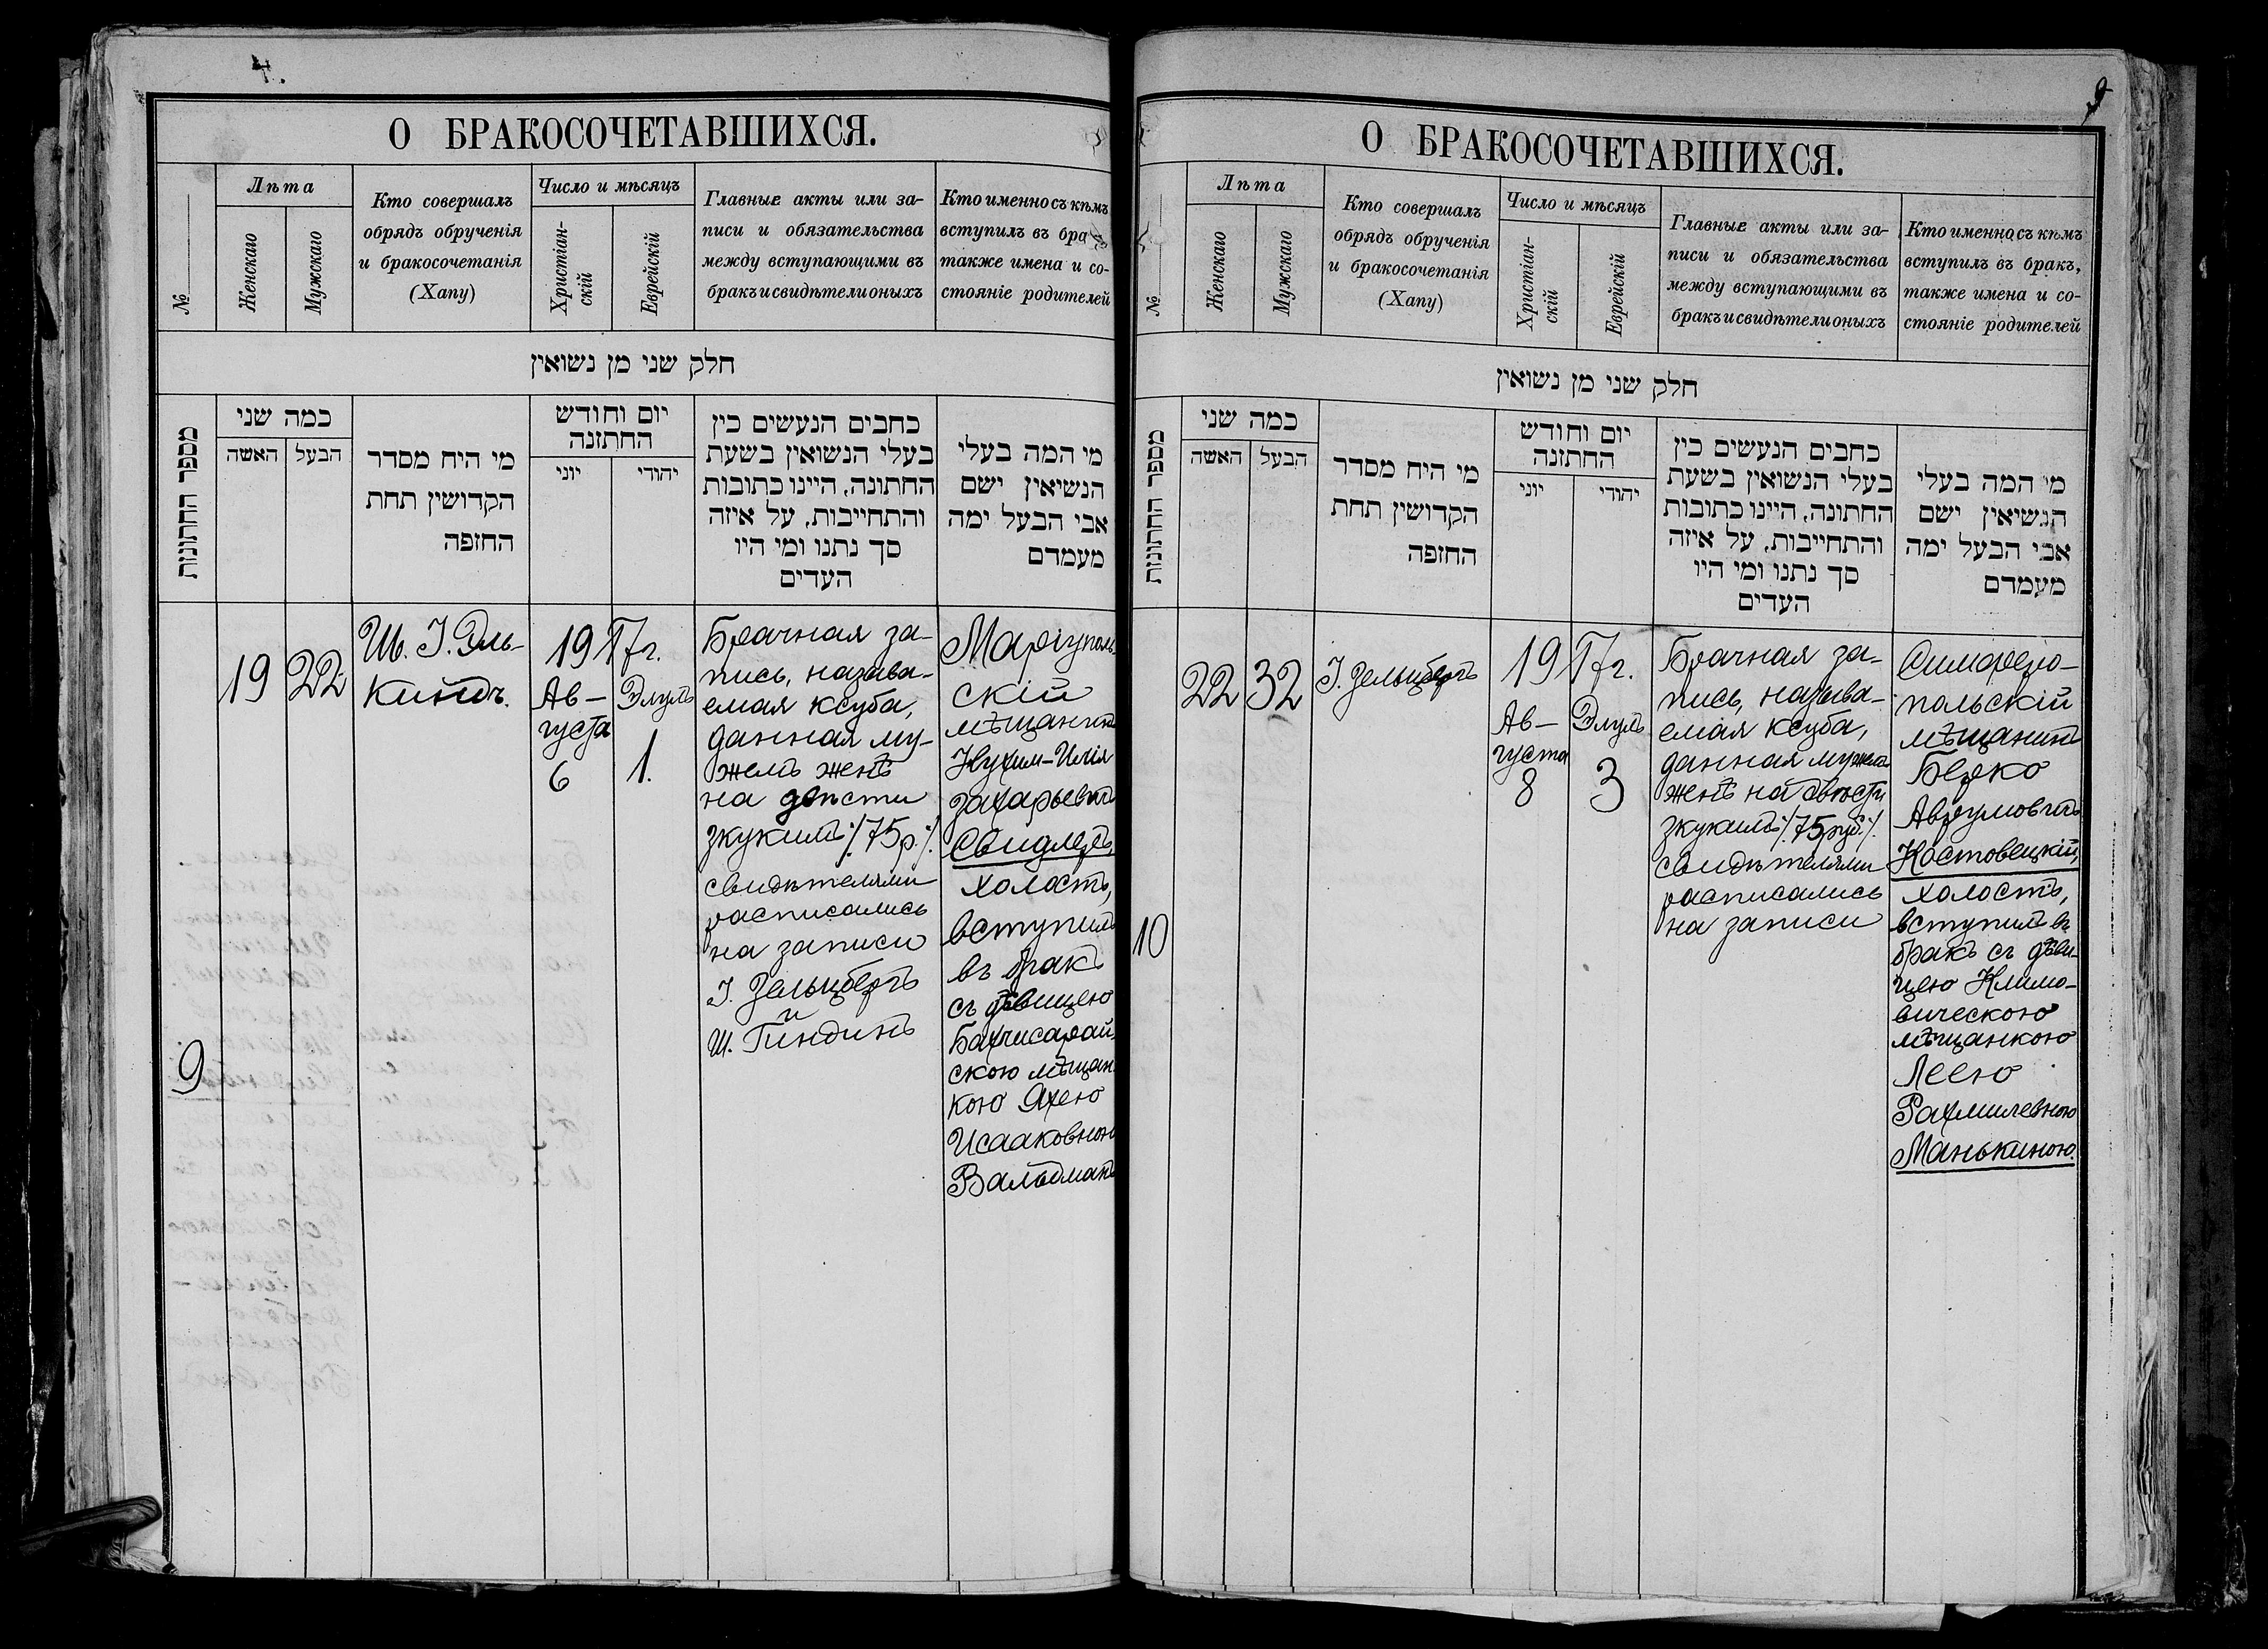 4.
О БРАКОСОЧЕТАВШИХСЯ.
№
Лѣта
Женскаго
Мужскаго
Кто совершалъ
обрядъ обрученія
и бракосочетанія
(Хапу)
Число и мѣсяцъ
Христіан-
скій
Еврейскій
Главные акты или за-
писи и обязательства
между вступающими въ
бракъ и свидѣтели оныхъ
Кто именно съ кѣмъ
вступилъ въ бра
также имена и со-
стояніе родителей
חלק שני מן נשואין
מספר החתונות
כמה שני
האשה
הבעל
מי היח מסדר
הקדושין תחת
החזפה
יום וחודש
החתזנה
יוני
יהודי
כחבים הנעשים כין
בעלי הנשואין בשעת
החתונה, היינו כתובות
והתחייבות, על איזה
סך נתנו ומי היו
העדים
מי המה בעלי
הנשיאין ישם
אבי הבעל ימה
מעמדם
9
19
22
Ш. І. Эль-
киндъ.
1917г.
Ав-
густа
6
Элулъ
1.
Брачная за-
пись, называ-
емая ксуба,
данная му-
жемъ женѣ
на двѣсти
зкукимъ ⁒ 75 р. ⁒
свидѣтелями
расписались
на записи
І. Зельцбергъ
и
Ш. Гиндинъ
Маріуполь-
скій
мѣщанинъ
Нухим-Илія
Захарьевичъ
Свидлеръ,
холостъ,
вступилъ
въ бракъ
съ дѣвицею
Бахчисарай-
скою мѣщан-
кою Яхею
Исааковною
Вальдманъ
9
О БРАКОСОЧЕТАВШИХСЯ.
№
Лѣта
Женскаго
Мужскаго
Кто совершалъ
обрядъ обрученія
и бракосочетанія
(Хапу)
Число и мѣсяцъ
Христіан-
скій
Еврейскій
Главные акты или за-
писи и обязательства
между вступающими въ
бракъ и свидѣтели оныхъ
Кто именно съ кѣмъ
вступилъ въ бракъ,
также имена и со-
стояніе родителей
חלק שני מן נשואין
מספר החתונות
כמה שני
האשה
הבעל
מי היח מסדר
הקדושין תחת
החזפה
יום וחודש
החתזנה
יוני
יהודי
כחבים הנעשים כין
בעלי הנשואין בשעת
החתונה, היינו כתובות
והתחייבות, על איזה
סך נתנו ומי היו
העדים
מי המה בעלי
הנשיאין ישם
אבי הבעל ימה
מעמדם
10
22
32
І. Зельцбергъ
1917г.
Ав-
густа
8
Элулъ
3
Брачная за-
пись, называ-
емая ксуба,
данная мужемъ
женѣ на двѣсти
зкукимъ ⁒ 75 руб. ⁒
свидѣтелями
расписались
на записи
Симферо-
польскій
мѣщанинъ
Берко
Аврумовичъ
Костовецкій,
холостъ,
вступилъ въ
бракъ съ дѣви-
цею Климо-
вическою
мѣщанкою
Леею
Рахмилевною
Манькиною.